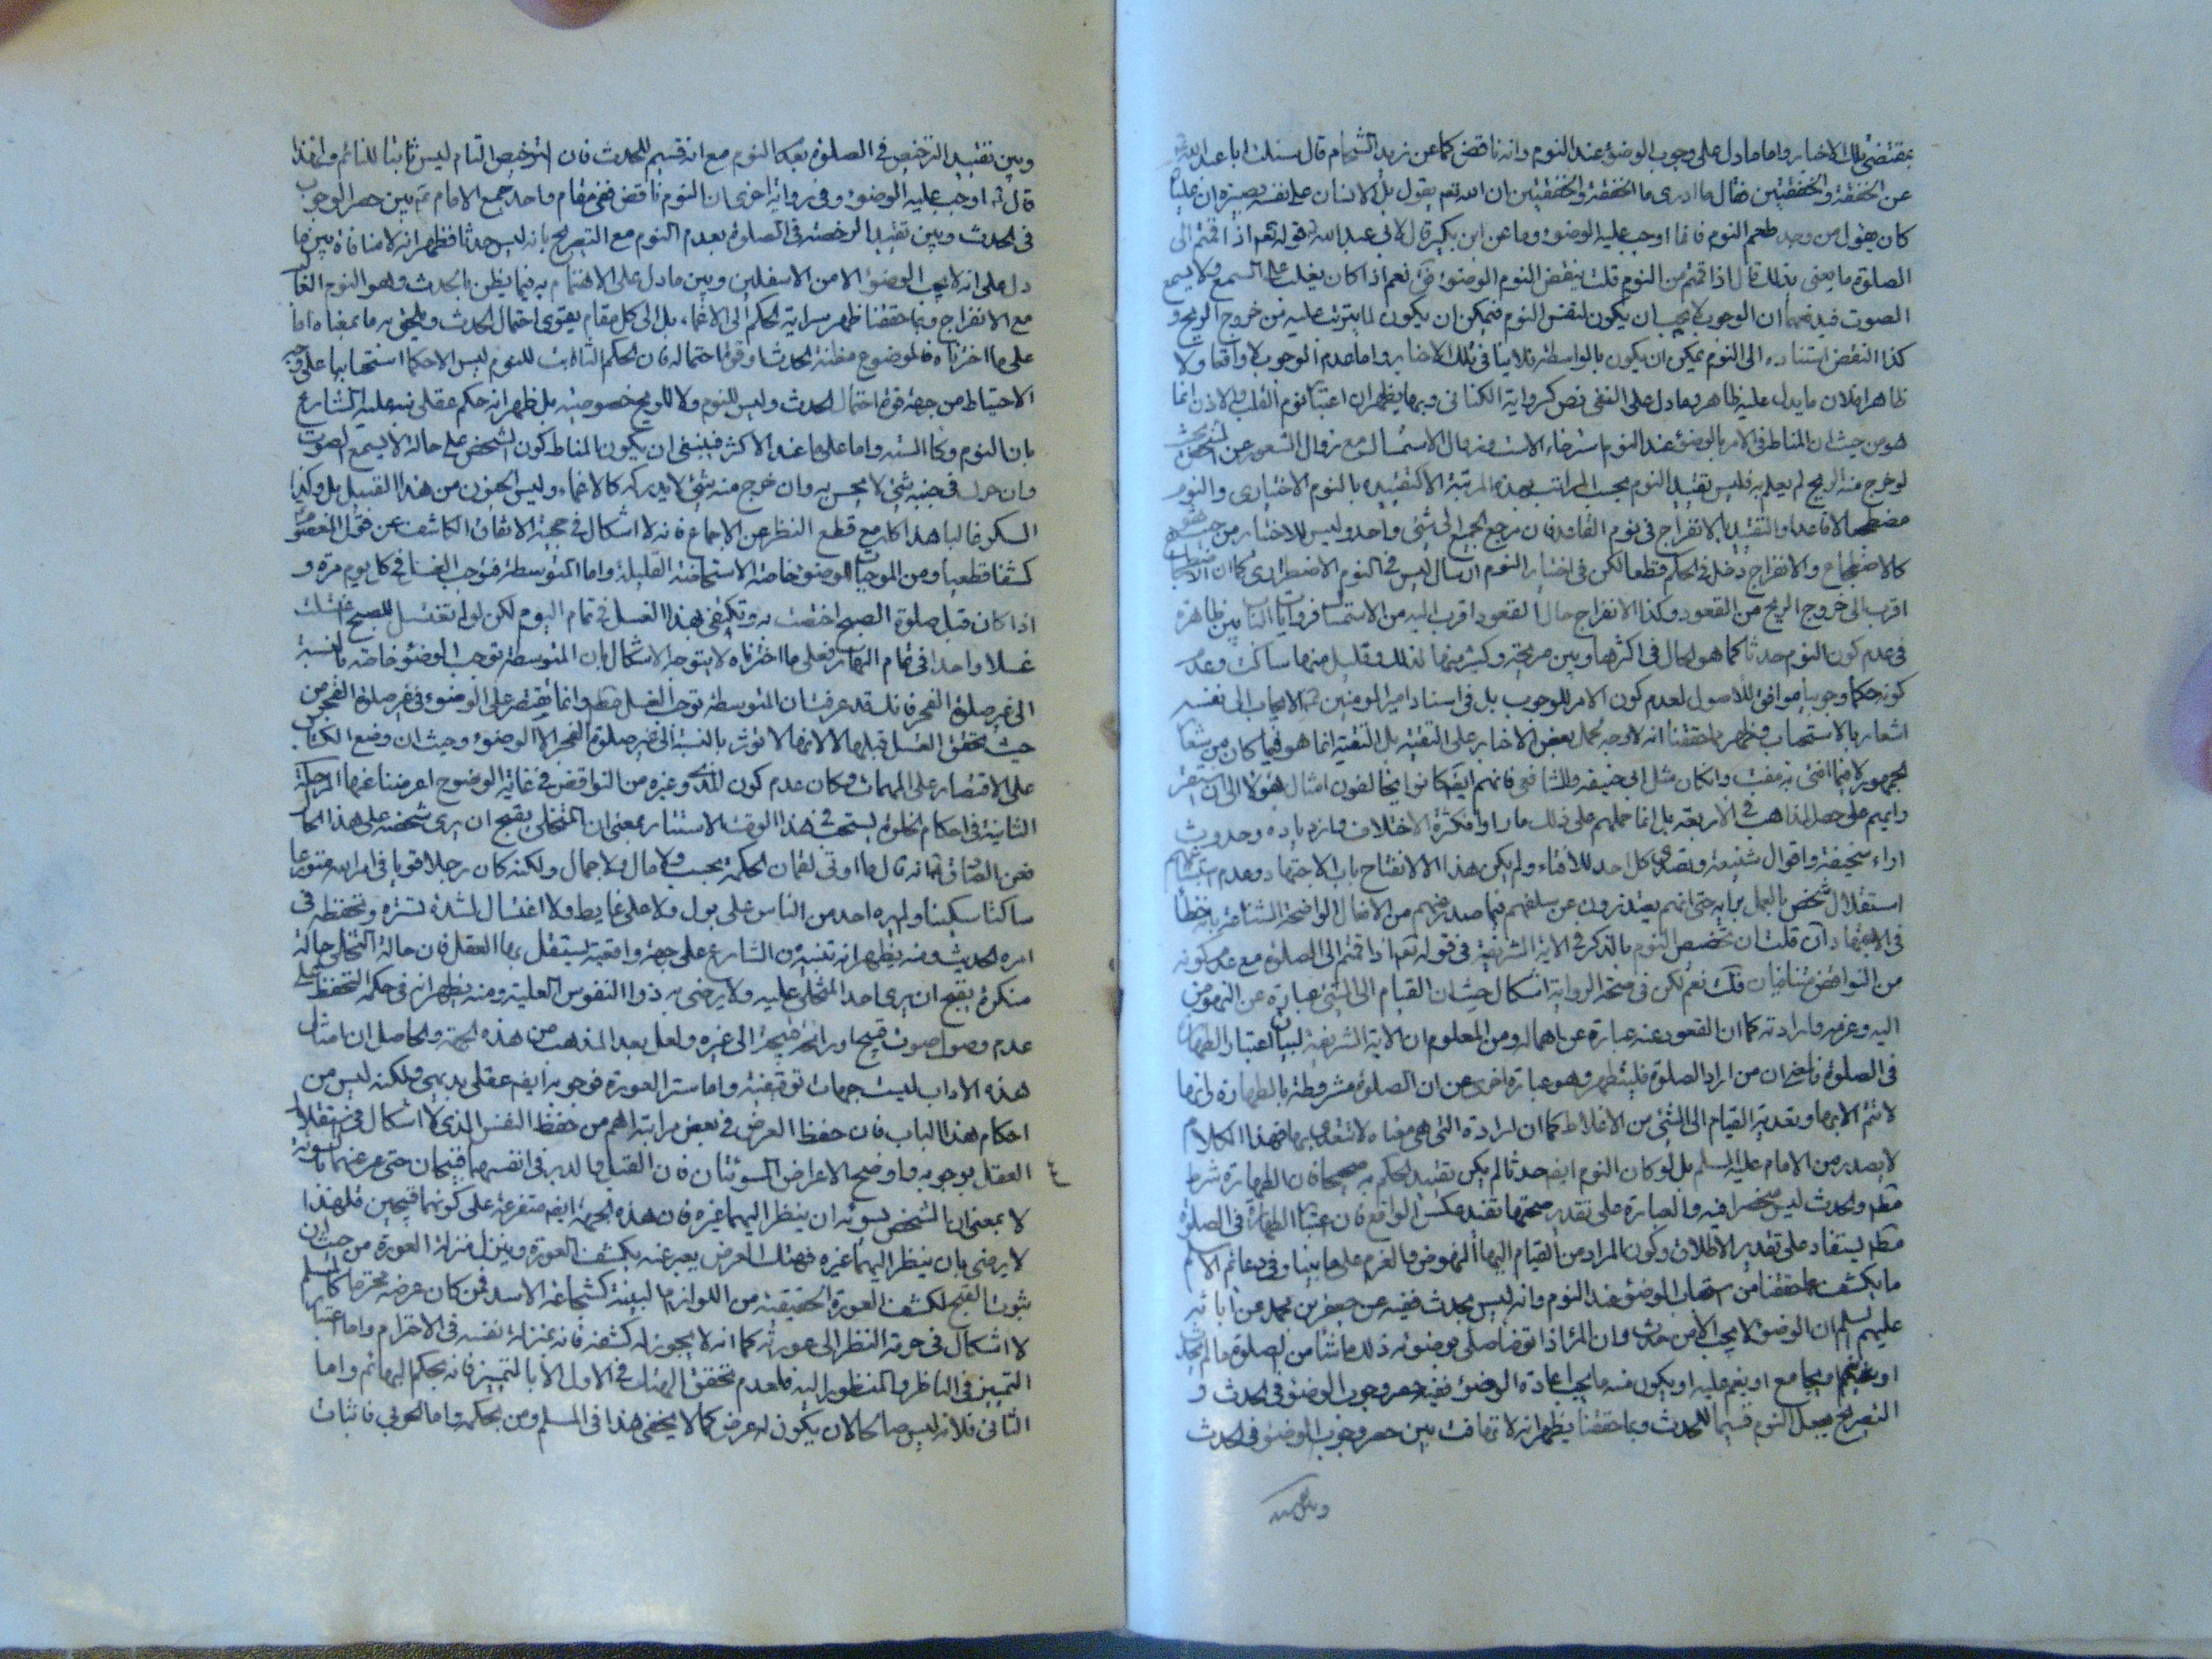 بمقتضى تلك الاخبار واما ما دل على وجوب الوضوء عند النوم وانه ناقض كما عن زيد الشحام قال سئلت ابا عبد الله
عن الخفقة والخفقتين فقال ما ادرى ما الخفقة والخفقتين ان الله تعم يقول بل الانسان على نفسه بصيرة ان عليا
كان يقول من وجد طعم النوم فانما اوجب عليه الوضوء وما عن ابن بكير قال لابي عبد الله قوله تعم اذا قمتم الى
الصلوة ما يعنى بذلك قال اذا قمتم من النوم قلت ينقض النوم الوضوء نعم اذا كان يغلب على السمع ولا يسمع
الصوت ان الوجوب ان يكون لنفس النوم فيمكن ان يكون لما يترتب عليه من خروج الريح و
كذا النقض استناده الى النوم يمكن ان يكون بالواسطة فلا ينافى تلك الاخبار واما عدم الوجوب لا واقعا ولا
ظاهرا فلان ما يدل عليه ظاهر وما دل على النفى نص كرواية الكنانى وبها يظهر ان اعتبار نوم القلب والاذن انما
هو من حيث ان المناط فى الامر بالوضوء عند النوم استرخاء الاست وزوال الاستمساك مع زوال الشعور عن الشخص بحيث
لو خرج منه الريح لم يعلم به فليس تقييد النوم بحسب المراتب بهذه المرتبة الا كتقييده بالنوم الاختيارى والنوم
مضطجعا لا قاعدا والتقييد بالانفراج فى نوم القاعد فان مرجع الجميع الى شئ واحد وليس للاختيار من حيث هو
كالاضطجاع والانفراج دخل فى الحكم قطعا لكن فى اختيار النوم ارسال ليس فى النوم الاضطرارى كما ان الاضطجاع
اقرب الى خروج الريح من القعود وكذا الانفراج حال القعود اقرب اليه من الاستمساك فروايات الباب بين ظاهرة
فى عدم كون النوم حدثا كما هو الحال فى اكثرها وبين صريحة وكثير منها لذلك وقليل منها ساكت وعدم
كونه حكما وجوبيا موافق للاصول لعدم كون الامر للوجوب بل فى اسناد امير المومنين الايجاب الى نفسه
اشعار بالاستحباب وظهر بما حققنا انه لا وجه لحمل بعض الاخبار على التقية بل التقية انما هو فيما كان من شعار
الجمهور لا فيما افتى به مفت وان كان مثل ابى حنيفه والشافعى فانهم ايضا كانوا يخالفون امثال هؤلاء الى ان استقر
رايهم على حصر المذاهب فى الاربعة بل انما حملهم على ذلك ما راوا من كثرة الاختلاف وازدياده وحدوث
اراء سخيفة واقوال شنيعة وتصدى كل احد للافتاء ولم يكن هذا الا لانفتاح باب الاجتهاد وعدم
استقلال شخص بالعمل برايه حتى انهم يعتذرون عن سلفهم فيما صدر منهم من الافعال الواضحة الشناعة بانه خطأ
فى الاجتهاد فان قلت ان تخصيص النوم بالذكر فى الاية الشريفة فى قوله تعم اذا قمتم الى الصلوة مع عدم كونه
من النواقض متنافيان قلت نعم لكن فى صحة الرواية اشكال حيث ان القيام الى الشئ عبارة عن النهوض
اليه وعزمه وارادته كما ان القعود عنه عبارة عن اهماله ومن المعلوم ان الاية الشريفة لبيان اعتبار الطهارة
فى الصلوة فالمعنى ان من اراد الصلوة فليتطهر وهو عبارة اخرى عن ان الصلوة مشروطة بالطهارة وانها
لا تتم الا بها وتعدية القيام الى الشئ من الاغلاط كما ان ارادة التى هى معناه لا تتعدى بها فهذا الكلام
لا يصدر من الامام عليه السلم بل لو كان النوم ايضا حدثا لم يكن تقييد الحكم به صحيحا فان الطهارة شرط
مطلقا والحدث ليس منحصرا فيه والعبارة على تقدير صحتها تفيد عكس الواقع فان اعتبار الطهارة فى الصلوة
مطلقا يستفاد على تقدير الاطلاق وكون المراد من القيام اليها النهوض والعزم على ما بينا وفى دعائم الاسلام
ما يكشف عما حققنا من استحباب الوضوء عند النوم وانه ليس بحدث ففيه عن جعفر بن محمد عن ابائه
عليهم السلم ان الوضوء لا يجب الا من حدث وان المرء اذا توضأ صلى بوضوئه ذلك ما شاء من الصلوة ما لم يحدث
او ينم او يجامع او يغم عليه او يكون منه ما يجب اعادة الوضوء ففيه حصر وجوب الوضوء فى الحدث و
التصريح بجعل النوم قسيما للحدث وبما حققنا يظهر انه لا تهافت بين حصر وجوب الوضوء فى الحدث
وبين تقييد
وبين تقييد الترخيص فى الصلوة بعدم النوم مع انه قسيم للحدث فان الترخيص التام ليس ثابتا للنائم ولهذا
قال اوجب عليه الوضوء وفى رواية اخرى ان النوم ناقض ففى مقام واحد جمع الامام بين حصر الوجوب
فى الحدث وبين تقييد الرخصة فى الصلوة بعدم النوم مع التصريح بانه ليس حدثا فظهر انه لا منافاة بين ما
دل على انه لا يجب الوضوء الا من الاسفلين وبين ما دل على الاهتمام به فيما يظن بالحدث وهو النوم الغالب
مع الانفراج وبما حققنا ظهر سراية الحكم الى الاغماء بل الى كل مقام يقوى احتمال الحدث ويلحق به ما بمعناه اما
على ما اخترناه فالموضوع مظنة الحدث او قوة احتماله فان الحكم الثابت للنوم ليس الا حكما استحبابيا على وجه
الاحتياط من جهة قوة احتمال الحدث وليس للنوم ولا للريح خصوصية بل ظهر انه حكم عقلى نبه عليه الشارع
بان النوم وكاء السته واما على ما عند الاكثر فينبغى ان يكون المناط كون الشخص على حالة لا يسمع الصوت
وان حرك فى جنبه شئ لا يحس به وان خرج منه شئ لا يدركه كالاغماء وليس الجنون من هذا القبيل بل وكذا
السكر غالبا هذا كله مع قطع النظر عن الاجماع فانه لا اشكال فى حجية الاتفاق الكاشف عن قول المعصوم
كشفا قطعيا ومن الموجبات للوضوء خاصة الاستحاضة القليلة واما المتوسطة فتوجب الغسل فى كل يوم مرة و
اذا كان قبل صلوة الصبح اختصت به وتكتفى بهذا الغسل فى تمام اليوم لكن لو لم تغتسل للصبح غسلت
غسلا واحدا فى تمام النهار وعلى ما اخترناه لا يتوجه الاشكال بان المتوسطة توجب الوضوء خاصة بالنسبة
الى غير صلوة الفجر فانك قد عرفت ان المتوسطة توجب الغسل مطلقا وانما يقتصر على الوضوء فى غير صلوة الفجر من
حيث تحقق الغسل قبلها لا لانها لا توثر بالنسبة الى غير صلوة الفجر الا الوضوء وحيث ان وضع الكتاب
على الاقتصار على المهمات وكان عدم كون المذى وغيره من النواقض فى غاية الوضوح اعرضنا عنها المرحلة
الثانية فى احكام الخلوة يستحب فى هذا الوقت الاستتار بمعنى ان المتخلى يقبح ان يرى شخصه على هذا الحال
فعن الصادق انه قال ما اوتى لقمان الحكمة بحسب ولا مال ولا جمال ولكنه كان رجلا قويا فى امر الله متورعا
ساكتا سكينا ولم يره احد من الناس على بول ولا على غايط ولا اغتسال لشدة تستره وتحفظه فى
امره الحديث ومنه يظهر انه تنبيه من الشارع على جهة واقعية يستقل بها العقل فان حالة التخلى حالة
منكرة يقبح ان يرى احد المتخلى عليه ولا يرضى به ذووا النفوس العلية ومنه يظهر ان فى حكمه التحفظ على
عدم وصول صوت قبيح او رائحة قبيحة الى غيره ولعل بعد المذهب من هذه الجهة والحاصل ان امثال
هذه الاداب ليست جهات توقيفية واما ستر العورة فوجوبه ايضا عقلى بديهى ولكنه ليس من
احكام هذا الباب فان حفظ العرض فى بعض مراتبه اهم من حفظ النفس الذى لا اشكال فى استقلال
العقل بوجوبه واوضح الاعراض السوئتان فان القبل والدبر فى انفسهما قبيحان حتى عبر عنهما بالسوئة
لا بمعنى ان الشخص يسوئه ان ينظر اليهما غيره فان هذه الجهة ايضا متفرعة على كونهما قبيحين فلهذا
لا يرضى بان ينظر اليهما غيره فهتك العرض يعبر عنه بكشف العورة وينزل منزلة العورة من حيث ان
ثبوت القبح لكشف العورة الحقيقية من اللوازم البينة كشجاعة الاسد فمن كان عرضه محترما كالمسلم
لا اشكال فى حرمة النظر الى عورته كما انه لا يجوز له كشفه فانه بمنزلة نفسه فى الاحترام واما اعتبار
التمييز فى الناظر والمنظور اليه فلعدم تحقق الهتك فى الاول الا بالتميز فانه بحكم البهائم واما
الثانى فلانه ليس صالحا لان يكون له عرض كما لا يخفى هذا فى المسلم ومن بحكمه واما الحربى فاثبات